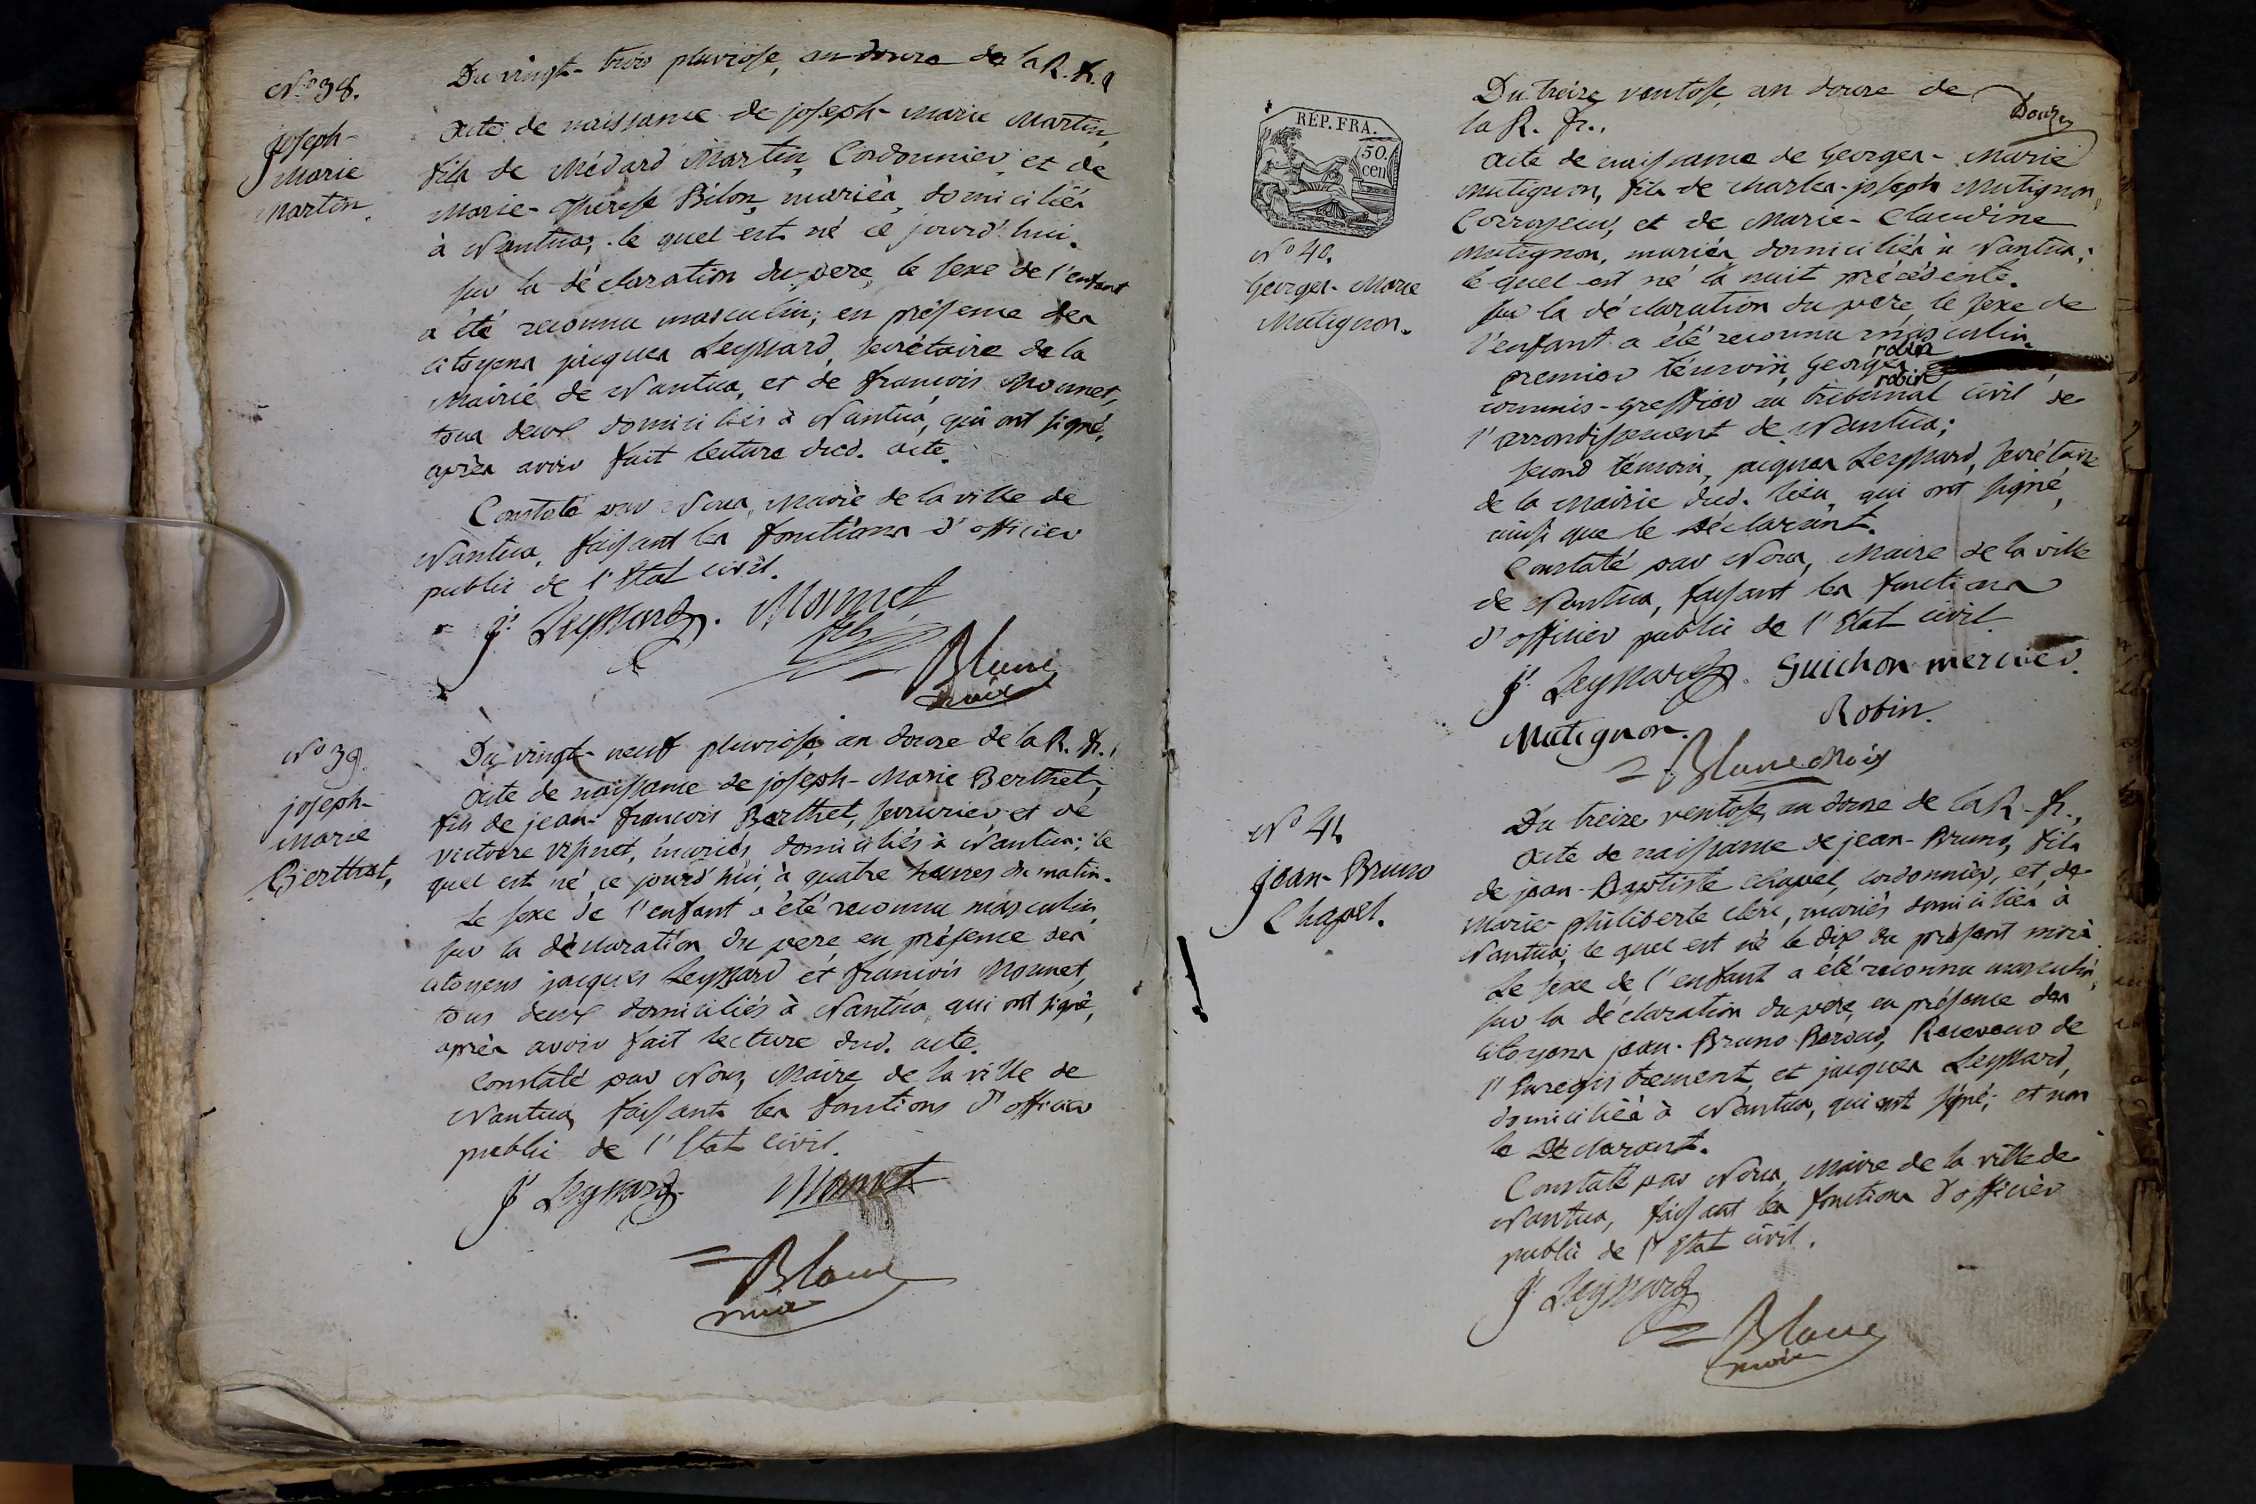 N.° 38.
joseph-
Marie
Martin.
Du vingt-trois pluviose, an douze de la R. fr.
Acte de naissance de joseph-marie Martin,
fils de Médard Martin, Cordonnier, et de
Marie-Therese Bilon, mariés, domiciliés
à Nantua; le quel est né ce jourd'hui.
sur la déclaration du pere, le sexe de l'enfant
a été reconnu masculin; en présence des
citoyens jacques Leyssard, secrétaire de la
Mairie de Nantua, et de françois Monnet,
tous deux domiciliés à Nantua, qui ont signé,
après avoir fait lecture dud. acte.
Constaté par Nous, Maire de la ville de
Nantua, faisant les fonctions d'officier
public de l'Etat civil.
J. Leyssard. Monnet
fils
Blanc
maire
N° 39.
joseph-
Marie
Berthet,
Du vingt-neuf pluviose, an douze de la R. fr.,
Acte de naissance de joseph-Marie Berthet,
fils de jean-françois Berthet, serrurier et de
victoire, mariés, domiciliés à Nantua; le
quel est né ce jourd'hui, à quatre heures du matin.
Le sexe de l'enfant a été reconnu masculin,
sur la déclaration du pere, en présence des
citoyens jacques Leyssard et françois Monnet,
tous deux domiciliés à Nantua, qui ont signé,
après avoir fait lecture dud. acte.
Constaté par Nous, Maire de la ville de
Nantua, faisant les fonctions d'officier
public de l'Etat Civil.
J. Leyssard Monnet
Blanc
maire
RÉP. FRA.
50.
cen
N° 40.
Georges-Marie
Mutignon.
Du treize ventose, an douze de
Douze
la R. fr.,
Acte de naissance de Georges-Marie
Mutignon, fils de charles-joseph Mutignon,
Corroyeur, et de Marie-Claudine
Mutignon, mariés, domiciliés à Nantua;
le quel est né la nuit précédente.
sur la déclaration du pere, le sexe de
l'enfant a été reconnu masculin.
robin
premier témoin, Georges
robin
commis-greffier au tribunal civil de
l'arrondissement de Nantua;
second témoin, jacques Leyssard, secrétaire
de la Mairie dud. lieu, qui ont signé,
ainsi que le déclarant.
Constaté par Nous, Maire de la ville
de Nantua, faisant les fonctions
d'officier public de l'Etat civil.
J. Leyssard. Guichon mercier.
Mutignon. Robin.
Blanc
N° 41.
jean-Bruno
Chapel.
Du treize ventose, an douze de la R. fr.,
Acte de naissance de jean-Bruno, fils
de jean-Baptiste Chapel, cordonnier, et de
Marie-philiberte Clerc, mariés domiciliés à
Nantua; le quel est né le dix du présent mois
Le sexe de l'enfant a été reconnu masculin,
sur la déclaration du pere, en présence des
citoyens jean-Bruno Beroud, Receveur de
l'Enregistrement, et jacques Leyssard,
domiciliés à Nantua, qui ont signé; et non
le Déclarant.
Constaté par Nous, Maire de la ville de
Nantua, faisant les fonctions d'officier
public de l'Etat civil.
J. Leyssard
Blanc
maire